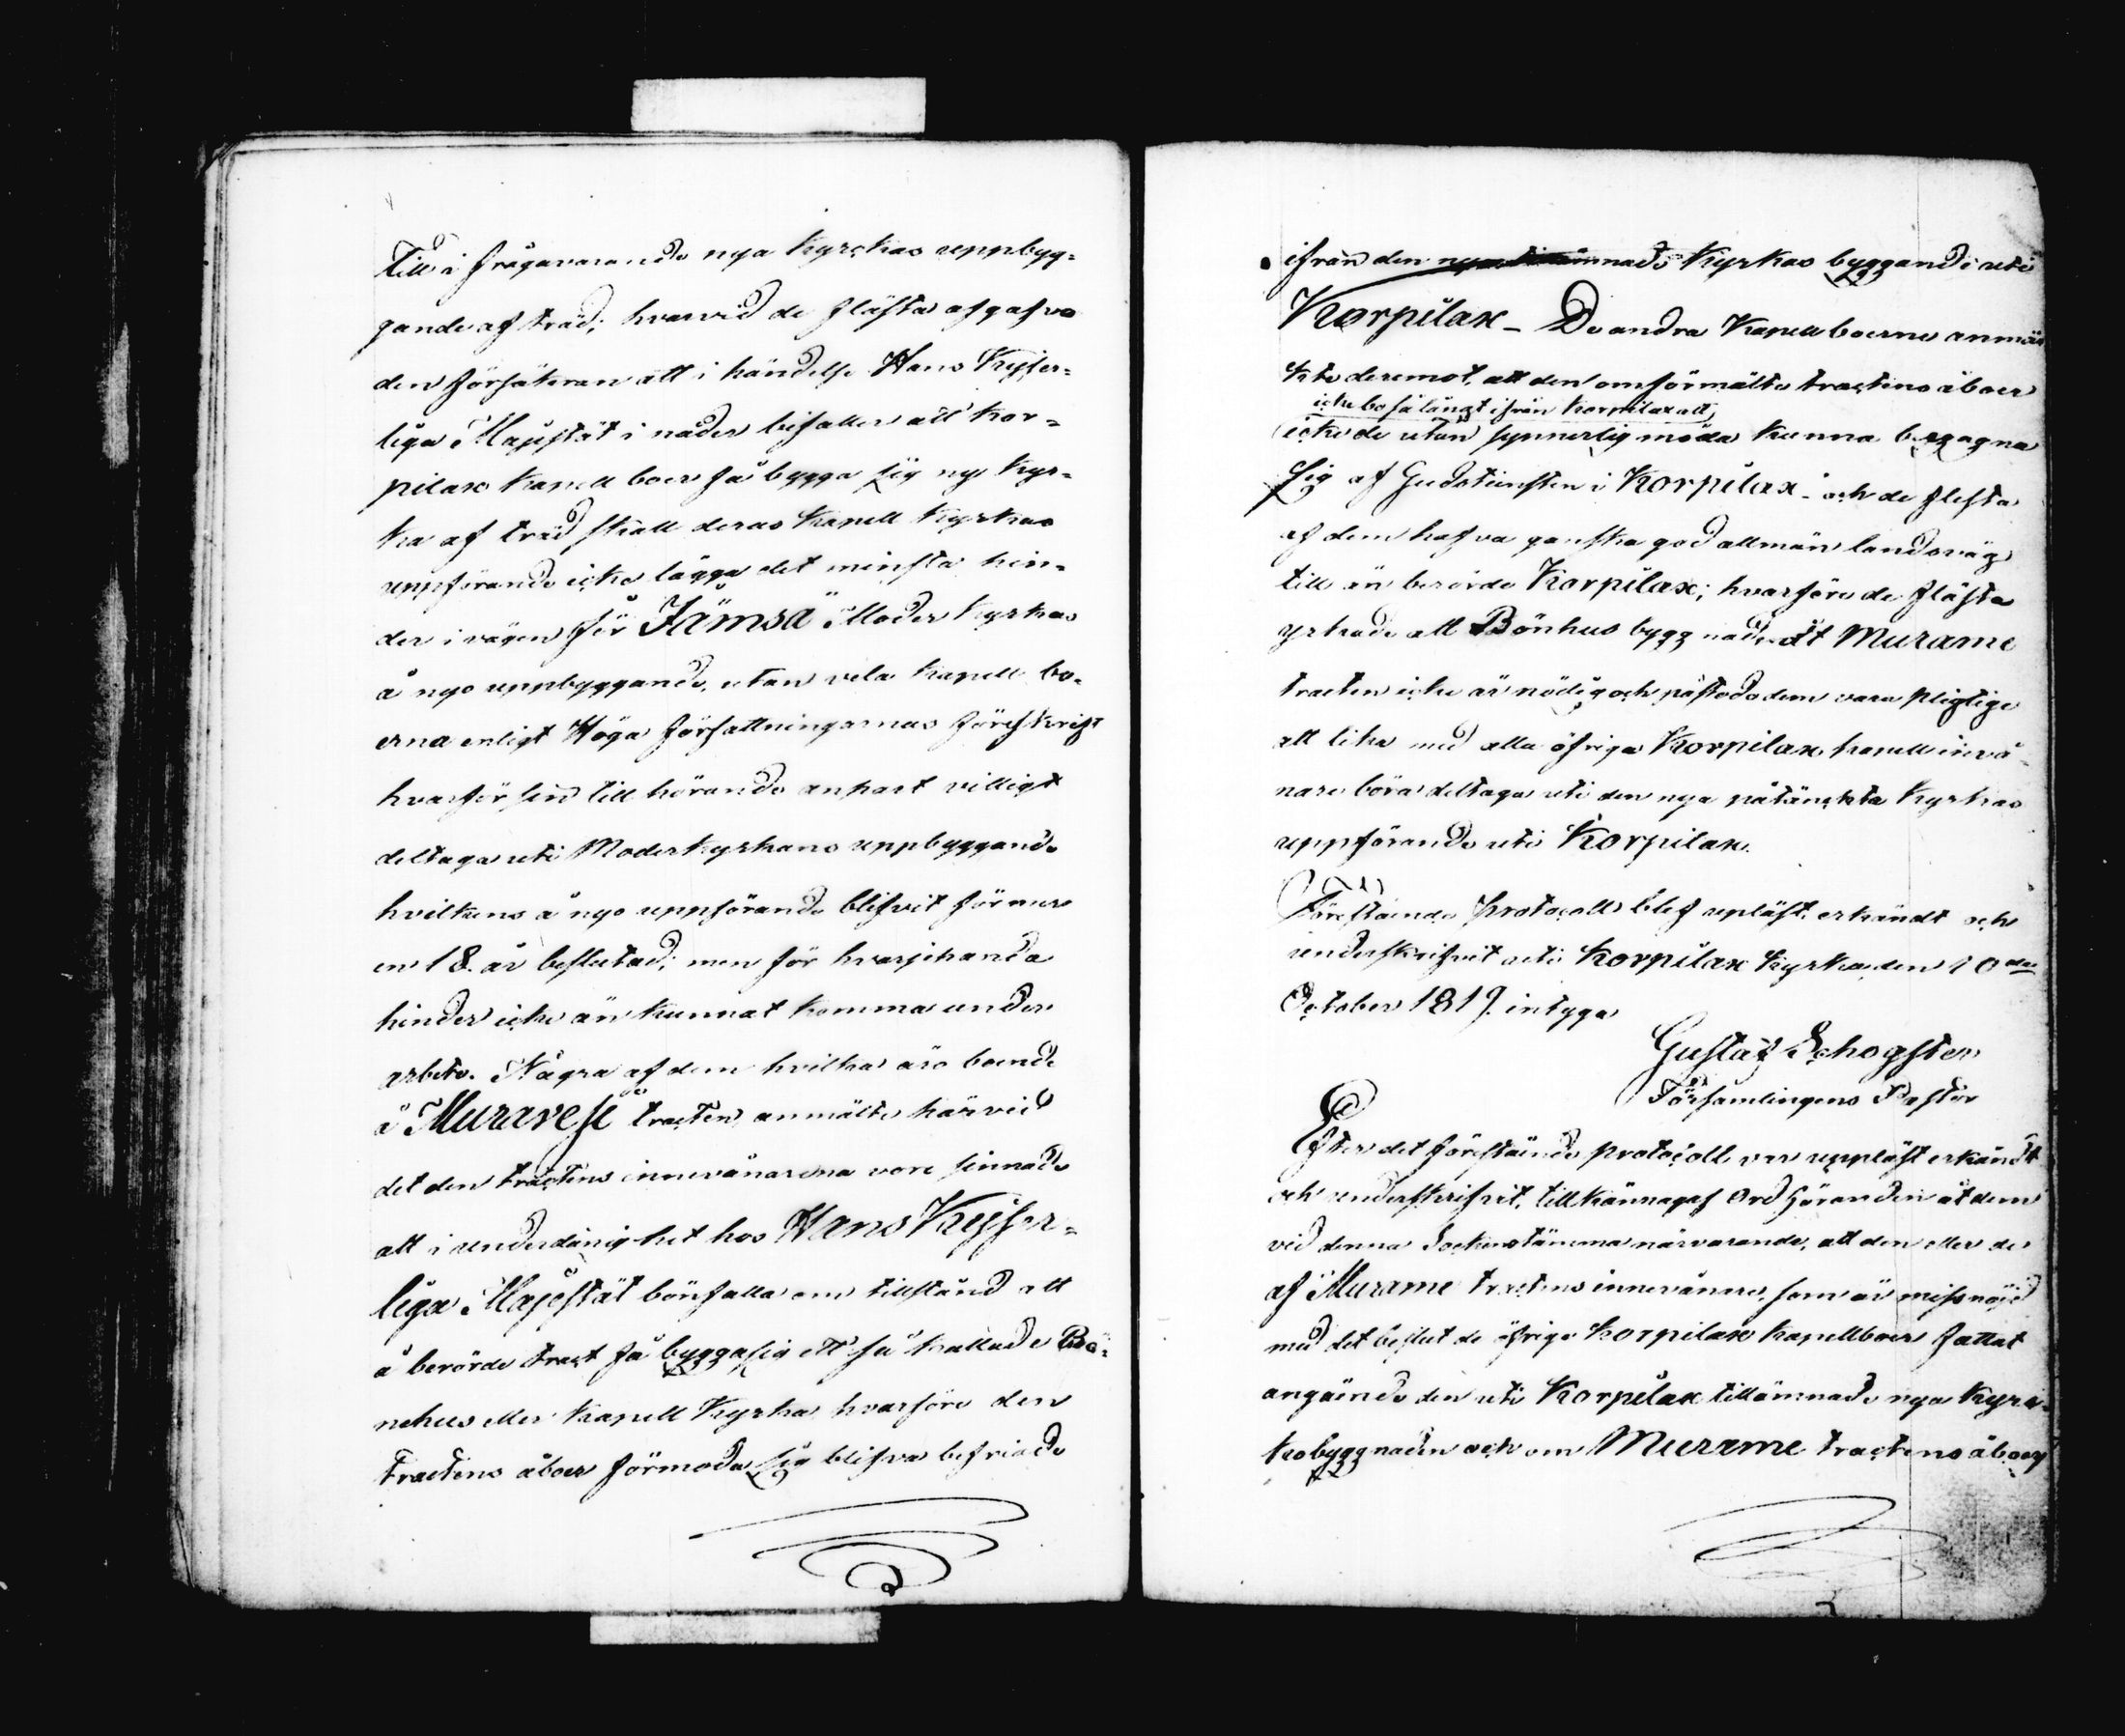 Till i frågavarande nya Kyrckas uppbyg=
gande af träd; hvarvid de flästa afgafvo
den försäkran att i händelse Hans Kejser=
liga Majestät i nåder bifaller att Kor=
pilax Kapell boer få bygga sig ny Kyr=
ka af träd skall deras Kapell Kyrkas
uppförande icke lägga det minsta hin=
der i vägen för Jämsä Moder Kyrkas
å nyo uppbyggande, utan vela Kapell bo=
erna enligt Höga författningarnas föreskrift
hvarför sin tillhörande anpart villigt
deltaga uti Moderkyrkans uppbyggande
hvilkens å nyo uppförande blifvit för mer
en 18 år beslutad; men för hvarjehanda
hinder icke än kunnat komma under
arbete. Några af dem hvilka äro boende
å Muravesi tracten anmälte härvid
det den tractens innevånarena vore sinnade
att i underdånighet hos Hans Kejser=
liga Majestät bönfalla om tillstånd att
å berörde tract få bygga sig ett så kallade Bö=
nehus eller Kapell Kyrka hvarföre den
tractens åboer förmoda sig blifva befriade
ifrån den nya tillämnade Kyrkas byggande uti
Korpilax – De andra Kapellboerne anmär
kte deremot, att den omförmälte tractens åboer
icke bo så långt ifrån Korpilax att
icke de utan synnerlig möda kunna begagna
sig af Gudstiensten i Korpilax – och de flesta
af dem hafva ganska god allmän landsväg
till än berörde Korpilax; hvarföre de flästa
yrkade att Bönhus byggnaden åt Murame
tracten icke är nödig och påstodo dem vara pligtige
att lika med alla öfriga Korpilax kapell invå=
nare böra deltaga uti den nya påtänckta Kyrkas
uppförande uti Korpilax.
Förestående Protocoll blef upläst, erkändt och
underskrifvit uti Korpilax Kyrka den 10de
October 1819. intyga
Gustaf Schogster
Församlingens Pastor
Efter det förestående protocoll var uppläst erkändt
och underskrifvit, tillkännagaf Ordföranden åt dem
vid denna Sockenstämma närvarande, att den eller de
af Murame tractens innevånare, som är missnöjd
med det beslut de öfrige Korpilax kapellboer fattat
angående den uti Korpilax tillämnade nya Kyr=
kobyggnaden och om Murame tractens åboer